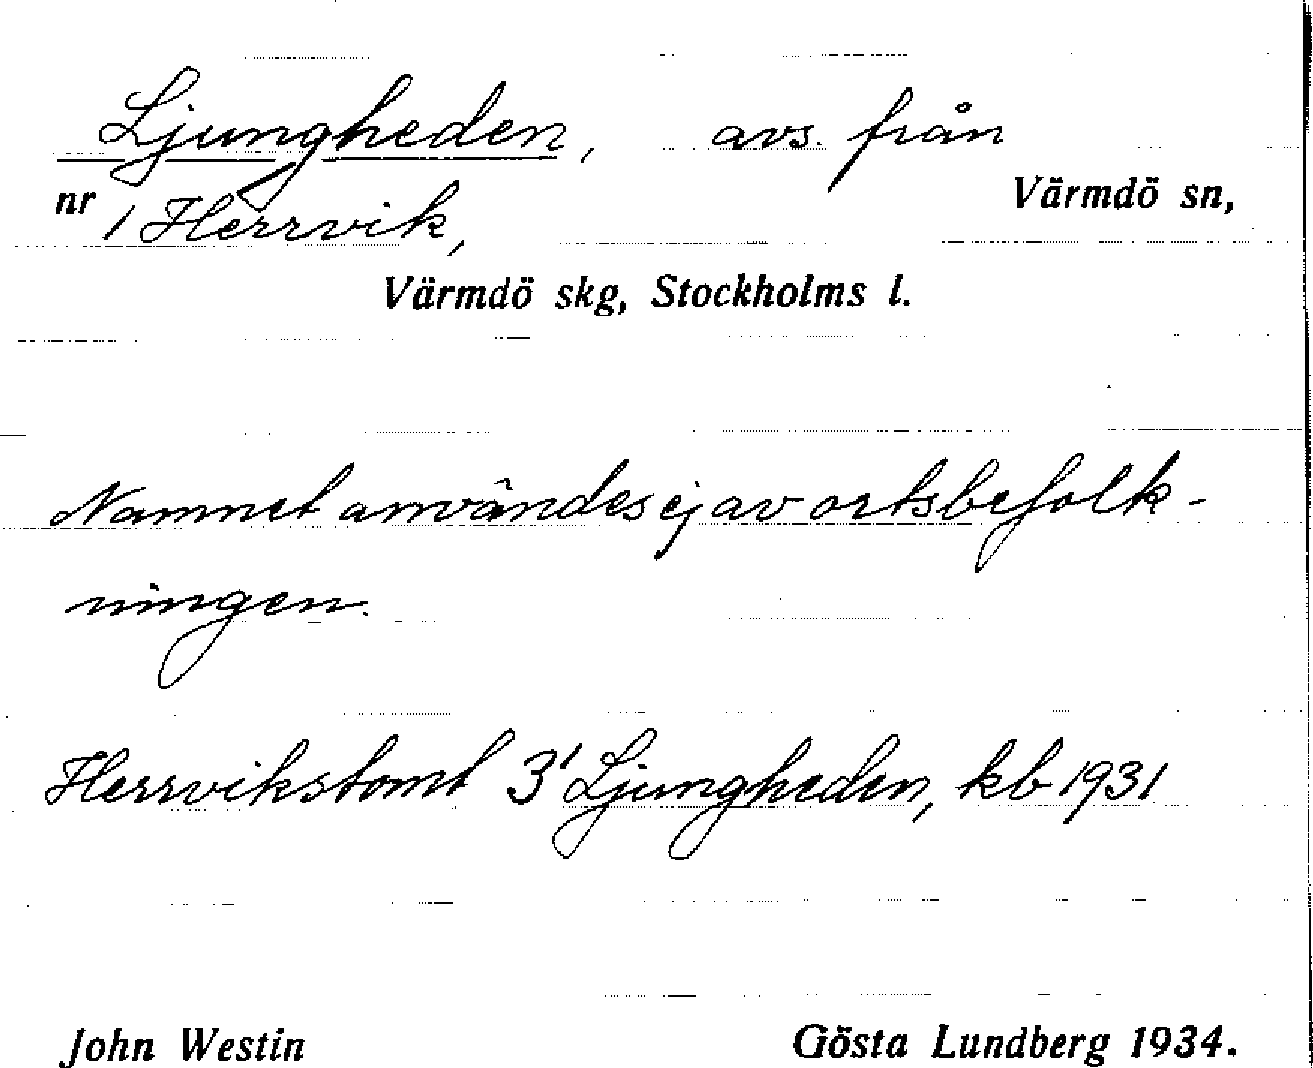 Ljungheden, avs. från
nr 1 Herrvik, Värmdö sn,
Värmdö skg, Stockholms l.
Namnet användes ej av ortsbefolk-
ningen.
Herrvikstomt 3' Ljungheden, kb 1931
John Westin Gösta Lundberg 1934.